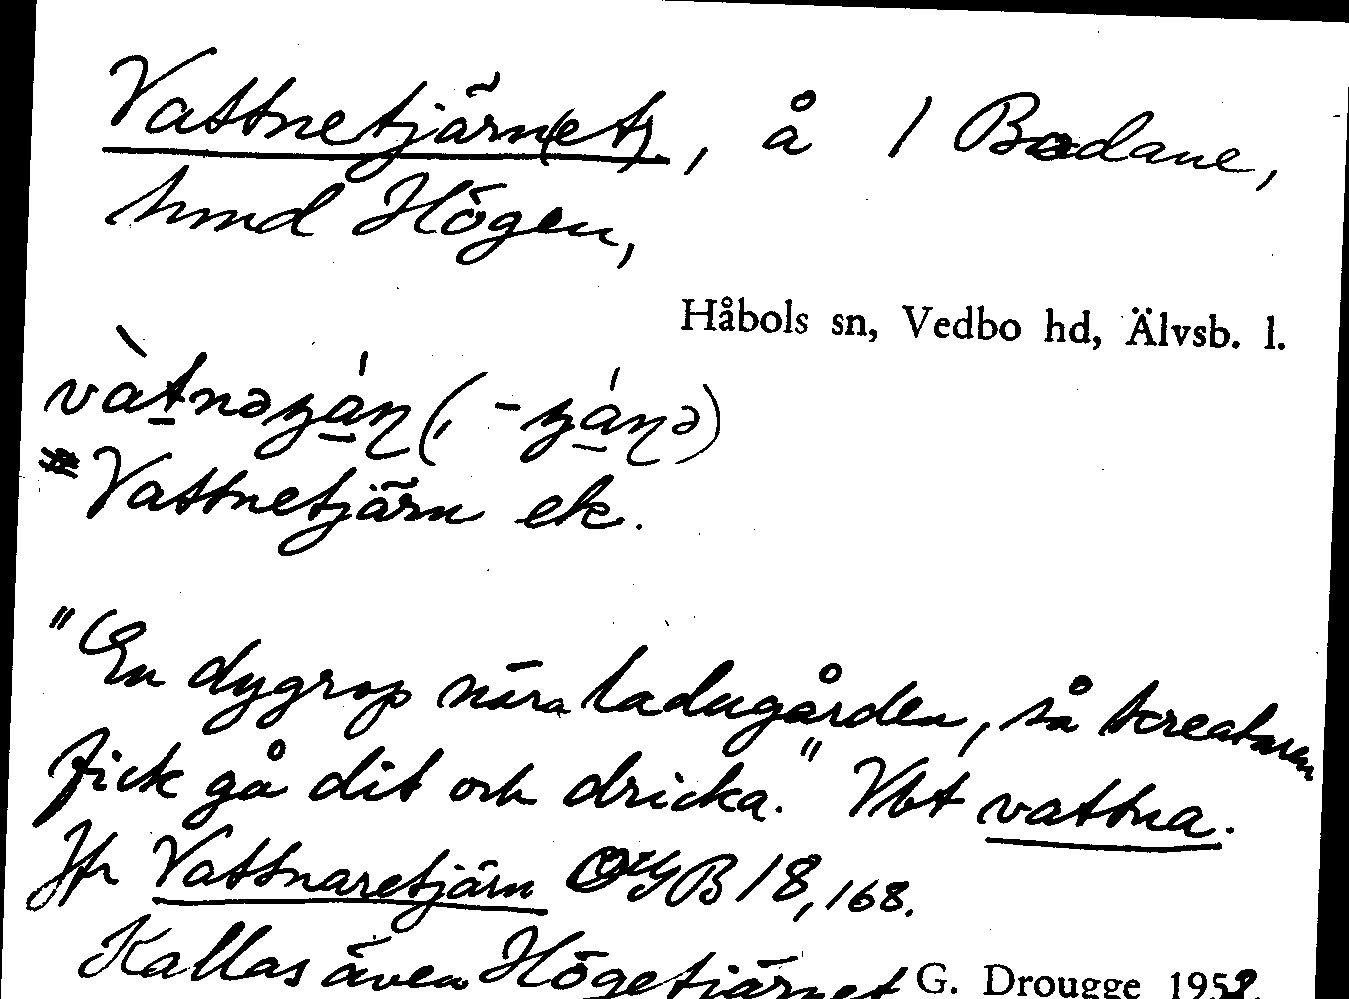 Vattnetjärn(et), å 1 Bodane,
hmd Högen,
Håbols sn, Vedbo hd, Älvsb. l.
Vattnetjärn ek.
"En dygrop nära ladugården, så kreaturen
fick gå dit och dricka." Vbt vattna.
Jfr Vattnaretjärn OGB 18, 168.
Kallas även Högetjärnet G. Drougge 1952.